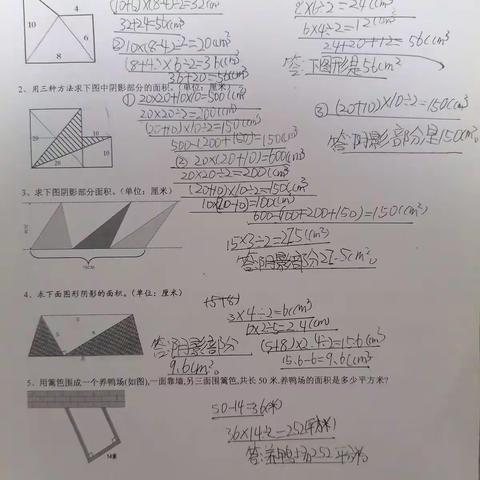 (10+6)×(8-4)÷2=32cm²
32+24=56cm²
②10×(8-4)÷2=20cm²
(8+4)×6÷2=36cm²
36+20=56cm²
6×4÷2=12cm²
24+20+12=56cm²
答:下图形是56cm²
4
10
6
8
2、用三种方法求下图中阴影部分的面积。(单位:厘米)
①20×20+10×10=500cm²
20×20÷2=200(cm²)
(20+10)×10÷2=150(cm²)
500-(200+150)=150(cm²)
②20×(20+10)=600(cm²)
20×20÷2=200(cm²)
(20+10)×10÷2=150(cm²)
10×(20-10)=100(cm²)
600-(100+200+150)=150(cm²)
③(20+10)×10÷2=150(cm²)
答:阴影部分是150cm²。
20
10
3、求下图阴影部分面积。(单位:厘米)
15×3÷2=22.5(cm²)
答:阴影部分22.5cm²。
15CM
4、求下面图形阴影的面积。(单位:厘米)
(5+8)
3×4÷2=6(cm²)
6×2÷5=2.4(cm)
(5+8)×2.4÷2=15.6(cm²)
15.6-6=9.6(cm²)
答:阴影部分
9.6cm²。
5、用篱笆围成一个养鸭场(如图),一面靠墙,另三面围篱笆,共长 50 米.养鸭场的面积是多少平方米?
50-14=36(米)
36×14÷2=252(平方米)
答:养鸭场252平方米。
14米